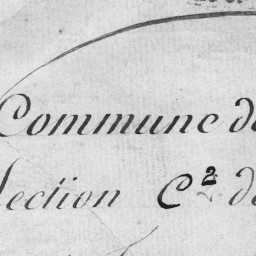 Commune de
Section C² de